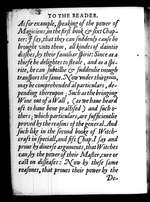 TO THE READER.
As for example, speaking of the power of
Magicians, in the first book & sixt Chap-
ter; I say, that they can suddenly cause be
brought unto them, all kindes of daintie
disshes, by their familiar spirit: Since as a
thiefe he delightes to steale, and as a spi-
rite, he can subtillie & suddenlie inough
transport the same. Now under this genus,
may be comprehended al particulars, de-
pending thereupon; Such as the bringing
Wine out of a Wall, (as we have heard
oft to have bene practised) and such o-
thers; which particulars, are sufficientlie
proved by the reasons of the general. And
such like in the second booke of Witch-
craft in speciall, and fift Chap. I say and
prove by diverse arguments, that Witches
can, by the power of their Master, cure or
cast on disseases: Now by these same
reasones, that proves their power by the
De-